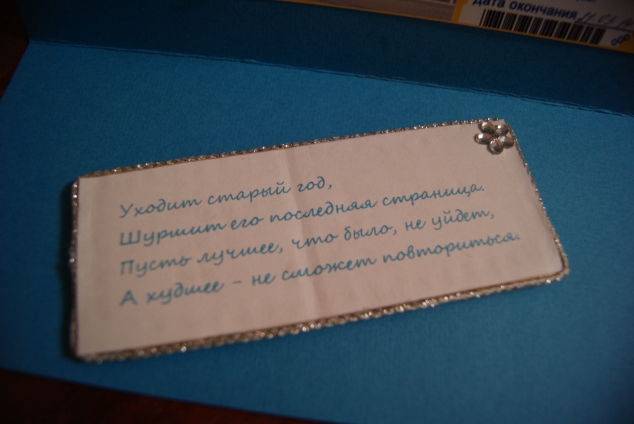 дата окончания
Уходит старый год,
Шуршит его последняя страница.
Пусть лучшее, что было, не уйдет,
А худшее - не сможет повториться.